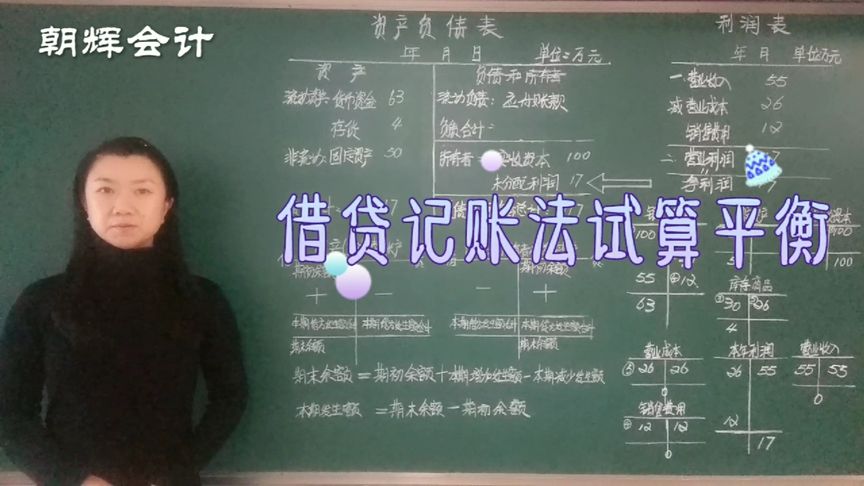 朝辉会计
资产负债表
年 月 日 单位:万元
资 产
负债和所有者
流动资产:货币资金 63
流动负债:应付账款
存货 4
负债合计:
非流动:固定资产 50
所有者: 实收资本 100
未分配利润 17
利润表
年 月 单位万元
一营业收入 55
减营业成本 26
销售费用 12
二营业利润
净利润
借贷记账法试算平衡
100
100
100
55 ④12
63
库存商品
30 26
4
期初余额
+ -
- +
本期借方发生额合计 本期贷方发生额合计
本期借方发生额合计 本期贷方发生额合计
期末余额
期末余额
期末余额=期初余额+本期增加发生额-本期减少发生额
本期发生额 =期末余额-期初余额
营业成本
26 26
0
本年利润
26 55
12
17
营业收入
55 55
0
销售费用
④12 12
0